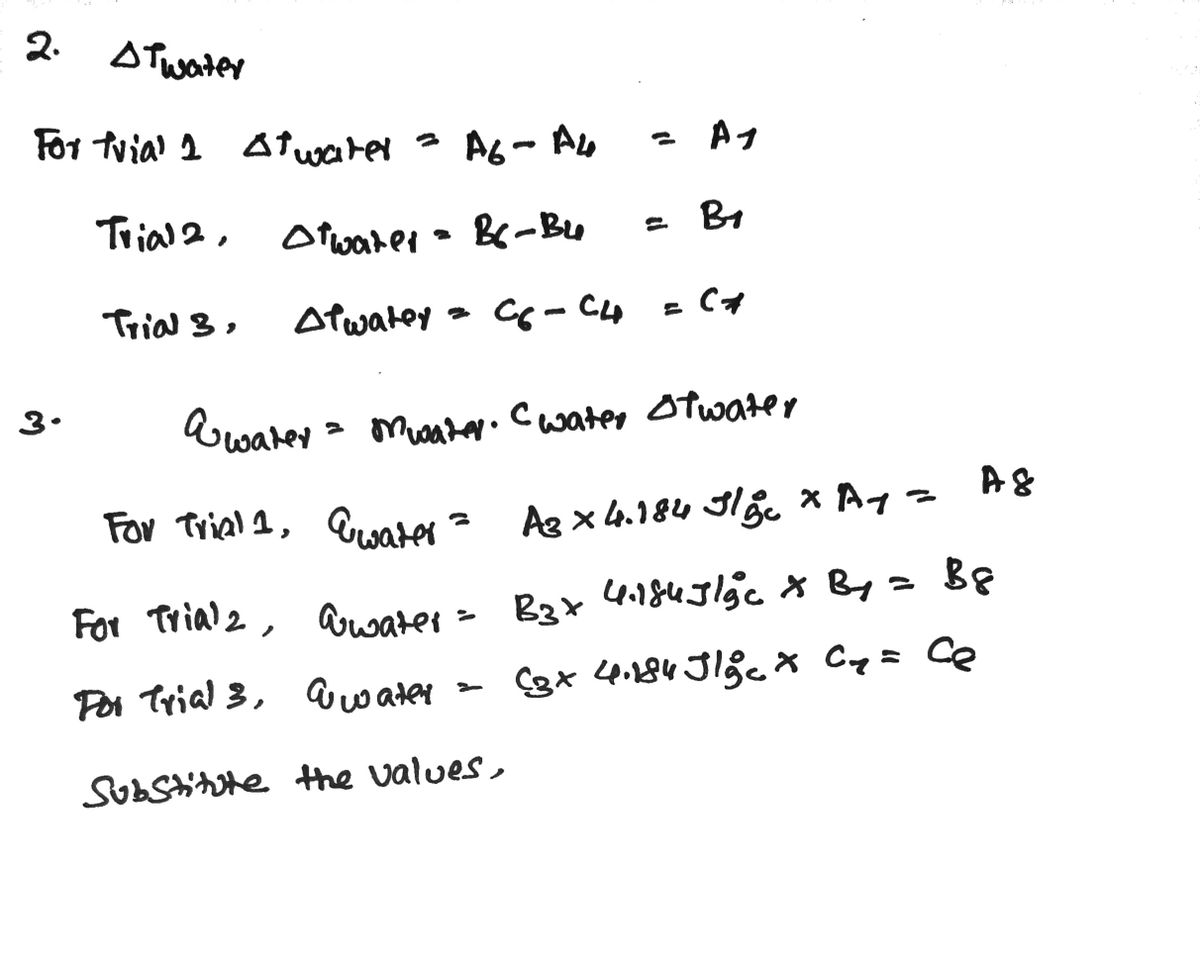 2. ΔTwater
For trial 1 Δtwater = A6 - A4 = A7
Trial 2, Δtwater = B6 - B4 = B7
Trial 3, Δtwater = C6 - C4 = C7
3. Qwater = mwater. Cwater Δtwater
For Trial 1, Qwater = A3 × 4.184 J/g°c × A7 = A8
For Trial 2, Qwater = B3 × 4.184 J/g°c × B7 = B8
For Trial 3, Qwater = C3 × 4.184 J/g°c × C7 = C8
Substitute the values,